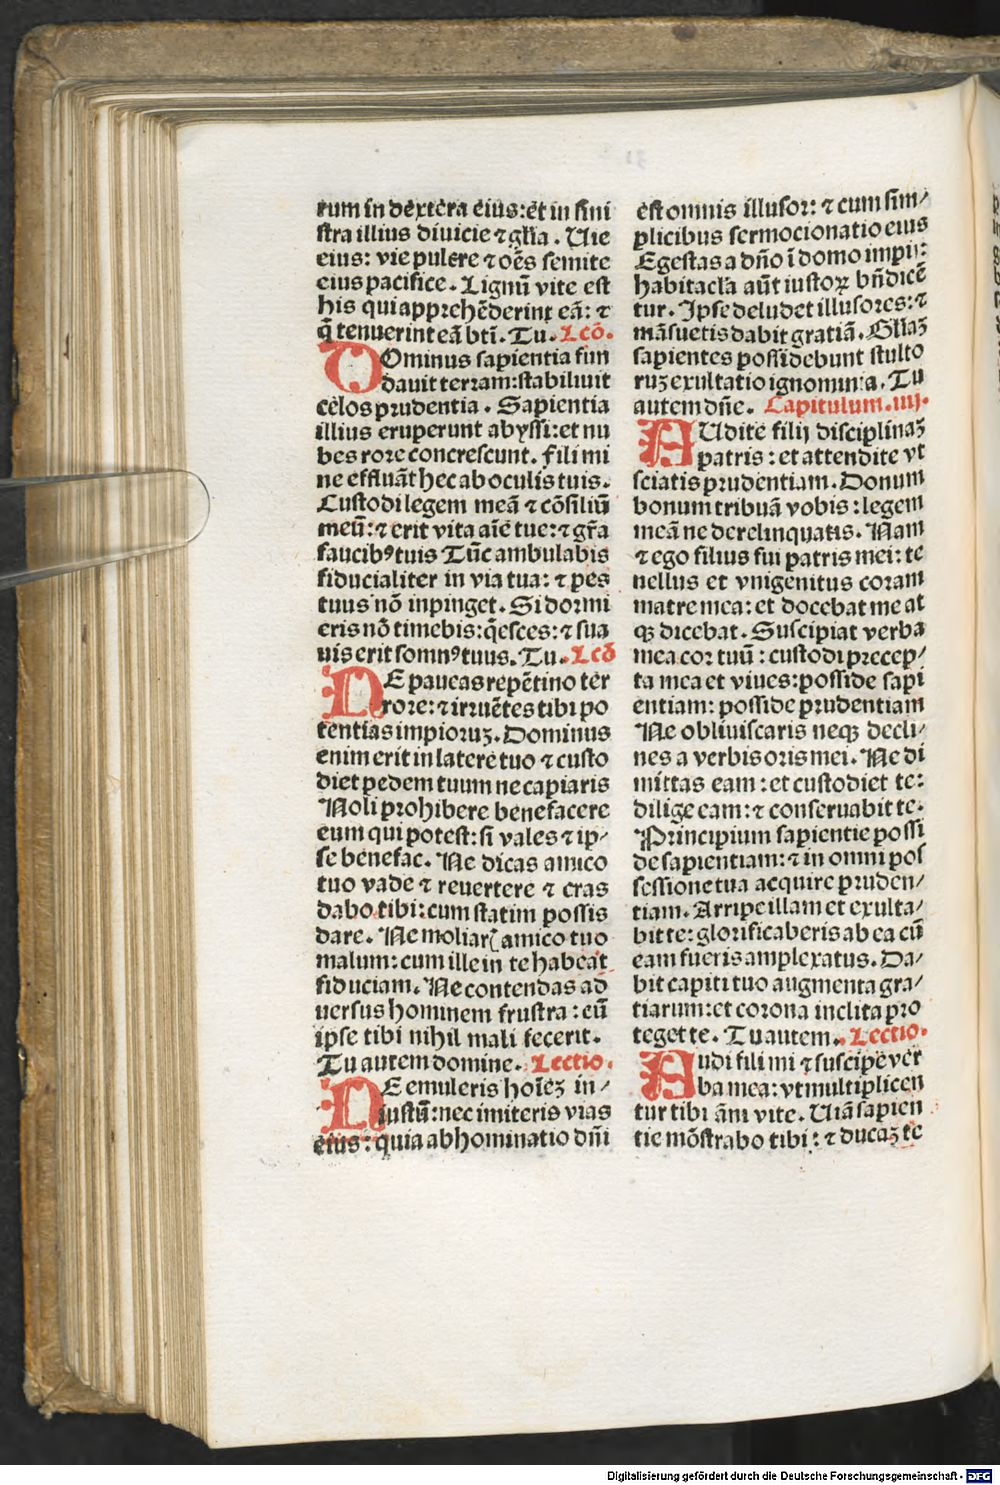 rum in dextera eius: et in sini
stra illius diuicie ⁊ gl̄ia. Uie
eius: vie pulcre ⁊ oēs semite
eius pacifice. Lignū vite est
his qui apprehēderint eā: ⁊
q̄ tenuerint eā bt̄i. Tu. Lcō.
DOminus sapientia fun
dauit terram: stabiliuit
celos prudentia. Sapientia
illius eruperunt abyssi: et nu
bes rore concrescunt. Fili mi
ne effluāt hec ab oculis tuis.
Custodi legem meā ⁊ cōsiliū
meū: ⁊ erit vita aīe tue: ⁊ gr̄a
faucibꝰ tuis Tūc ambulabis
fiducialiter in via tua: ⁊ pes
tuus nō inpinget. Si dormi
eris nō timebis: q̄esces: ⁊ sua
uis erit somnꝰ tuus. Tu. Lcō
NE paueas repētino ter
rore: ⁊ irruētes tibi po
tentias impioruꝫ. Dominus
enim erit in latere tuo ⁊ custo
diet pedem tuum ne capiaris
Noli prohibere benefacere
eum qui potest: si vales ⁊ ip⸗
se benefac. Ne dicas amico
tuo vade ⁊ reuertere ⁊ cras
dabo tibi: cum statim possis
dare. Ne moliar̄ amico tuo
malum: cum ille in te habeat
fiduciam. Ne contendas ad
uersus hominem frustra: cū
ipse tibi nihil mali fecerit.
Tu autem domine. Lectio.
NE emuleris hoīeꝫ in⸗
iustū: nec imiteris vias
eius: quia abhominatio dn̄i
est omnis illusor: ⁊ cum sim⸗
plicibus sermocionatio eius
Egestas a dn̄o ī domo impij:
habitacl̄a aūt iustoꝝ bn̄dicē
tur. Ipse deludet illusores: ⁊
māsuetis dabit gratiā. Gl̄iaꝫ
sapientes possidebunt stulto
ruꝫ exultatio ignominia. Tu
autem dn̄e. Capitulum. iiij.
AUdite filij disciplinaꝫ
patris: et attendite vt
sciatis prudentiam. Donum
bonum tribuā vobis: legem
meā ne derelinquatis. Nam
⁊ ego filius fui patris mei: te
nellus et vnigenitus coram
matre mea: et docebat me at
qꝫ dicebat. Suscipiat verba
mea cor tuū: custodi precep⸗
ta mea et viues: posside sapi
entiam: posside prudentiam
Ne obliuiscaris neqꝫ decli⸗
nes a verbis oris mei. Ne di
mittas eam: et custodiet te:
dilige eam: ⁊ conseruabit te.
Principium sapientie possi
de sapientiam: ⁊ in omni pos
sessione tua acquire pruden⸗
tiam. Arripe illam et exulta⸗
bit te: glorificaberis ab ea cū
eam fueris amplexatus. Da⸗
bit capiti tuo augmenta gra⸗
tiarum: et corona inclita pro
teget te. Tu autem. Lectio.
Audi fili mi ⁊ suscipe ver
ba mea: vt multiplicen
tur tibi āni vite. Uiā sapien
tie mōstrabo tibi: ⁊ ducaꝫ te
Digitalisierung gefördert durch die Deutsche Forschungsgemeinschaft - DFG